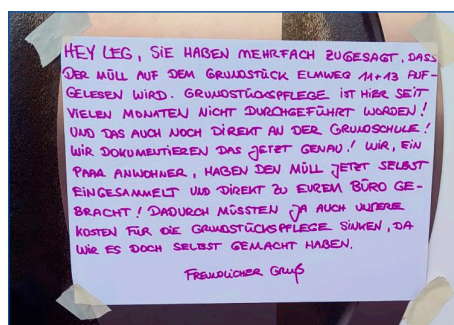 HEY LEG, SIE HABEN MEHRFACH ZUGESAGT, DASS
DER MÜLL AUF DEM GRUNDSTÜCK ELMWEG 11+13 AUF-
GELESEN WIRD. GRUNDSTÜCKSPFLEGE IST HIER SEIT
VIELEN MONATEN NICHT DURCHGEFÜHRT WORDEN!
UND DAS AUCH NOCH DIREKT AN DER GRUNDSCHULE!
WIR DOKUMENTIEREN DAS JETZT GENAU! WIR, EIN
PAAR ANWOHNER, HABEN DEN MÜLL JETZT SELBST
EINGESAMMELT UND DIREKT ZU EUREM BÜRO GE-
BRACHT! DADURCH MÜSSTEN JA AUCH UNSERE
KOSTEN FÜR DIE GRUNDSTÜCKSPFLEGE SINKEN, DA
WIR ES DOCH SELBST GEMACHT HABEN.
FREUNDLICHER GRUß